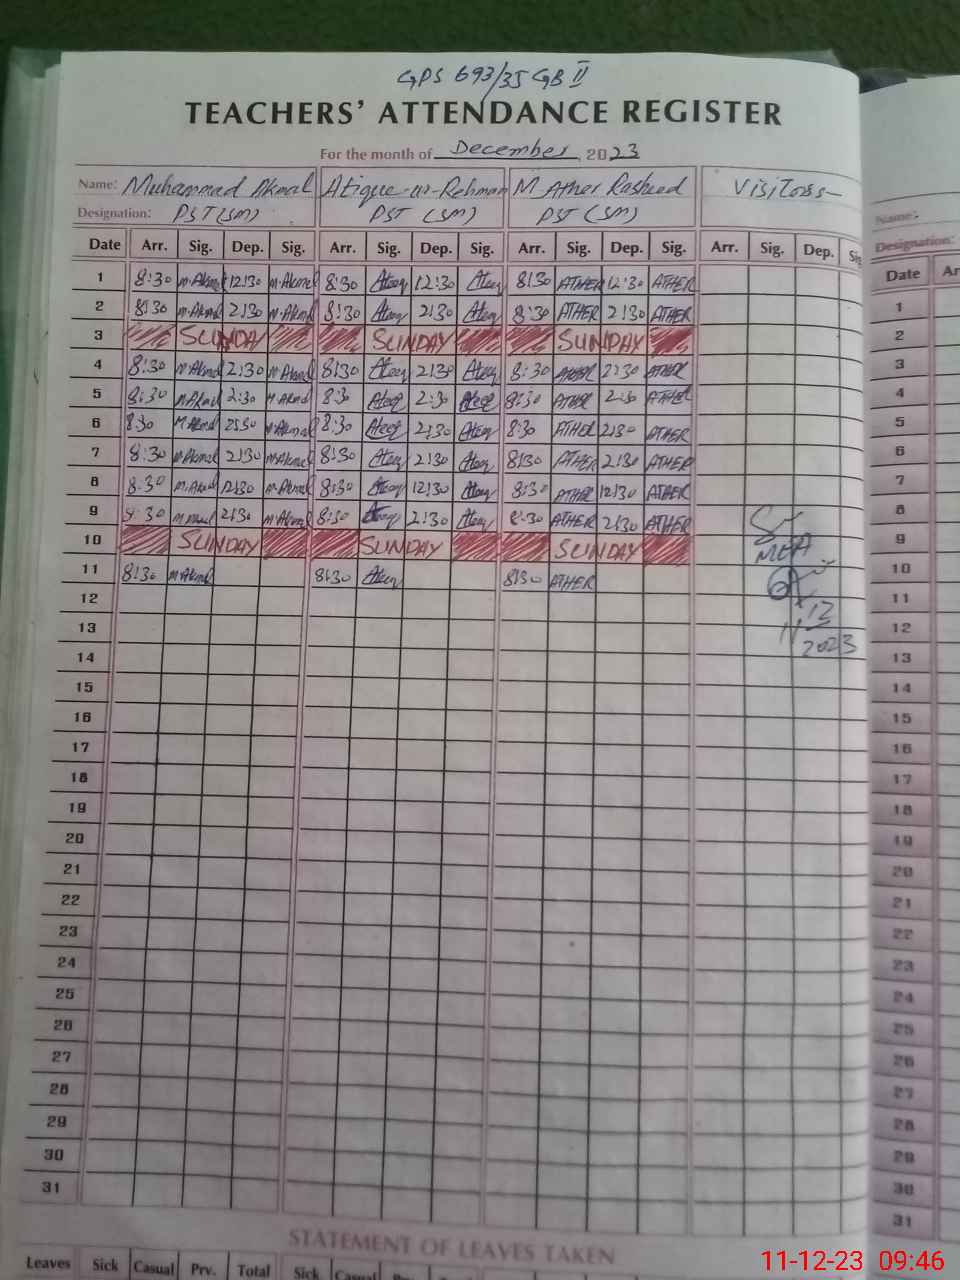 GPS 693/35 GB II
TEACHERS' ATTENDANCE REGISTER
For the month of December, 2023
Name: Muhammad Akmal Atique-ur-Rehman M Ather Rasheed Visitors
Designation: PST (SM) PST (SM) PST (SM)
Date Arr. Sig. Dep. Sig. Arr. Sig. Dep. Sig. Arr. Sig. Dep. Sig. Arr. Sig. Dep. Sig
1 8:30 M.Akmal 12:30 M.Akmal 8:30 Ateeq 12:30 Ateeq 8:30 ATHER 12:30 ATHER
2 8:30 M.Akmal 2:30 M.Akmal 8:30 Ateeq 2:30 Ateeq 8:30 ATHER 2:30 ATHER
3 SUNDAY SUNDAY SUNDAY
4 8:30 M.Akmal 2:30 M.Akmal 8:30 Ateeq 2:30 Ateeq 8:30 ATHER 2:30 ATHER
5 8:30 M.Akmal 2:30 M.Akmal 8:30 Ateeq 2:30 Ateeq 8:30 ATHER 2:30 ATHER
6 8:30 M.Akmal 2:30 M.Akmal 8:30 Ateeq 2:30 Ateeq 8:30 ATHER 2:30 ATHER
7 8:30 M.Akmal 2:30 M.Akmal 8:30 Ateeq 2:30 Ateeq 8:30 ATHER 2:30 ATHER
8 8:30 M.Akmal 12:30 M.Akmal 8:30 Ateeq 12:30 Ateeq 8:30 ATHER 12:30 ATHER
9 8:30 M.Akmal 2:30 M.Akmal 8:30 Ateeq 2:30 Ateeq 8:30 ATHER 2:30 ATHER
10 SUNDAY SUNDAY SUNDAY MEA
11 8:30 M.Akmal 8:30 Ateeq 8:30 ATHER
12
13 11 12 2023
14
15
16
17
18
19
20
21
22
23
24
25
26
27
28
29
30
31
STATEMENT OF LEAVES TAKEN
Leaves Sick Casual Prv. Total Sick Casual
Name:
Designation:
Date Ar
1
2
3
4
5
6
7
8
9
10
11
12
13
14
15
16
17
18
19
20
21
22
23
24
25
26
27
28
29
30
31
11-12-23 09:46